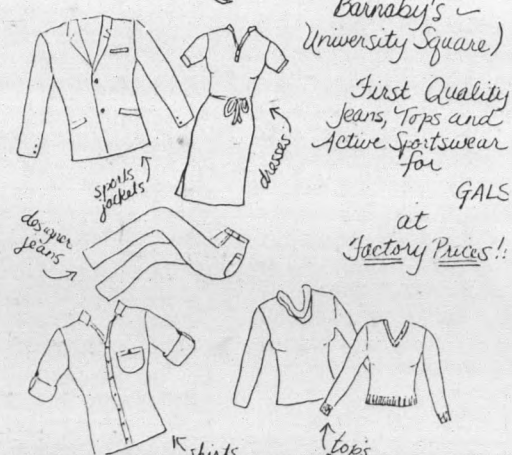 Barnaby's ~
University Square)
First Quality
Jeans, Tops and
Active Sportswear
for
GALS
at
Factory Prices!!
sports
jackets
dresses
designer
jeans
shirts
tops